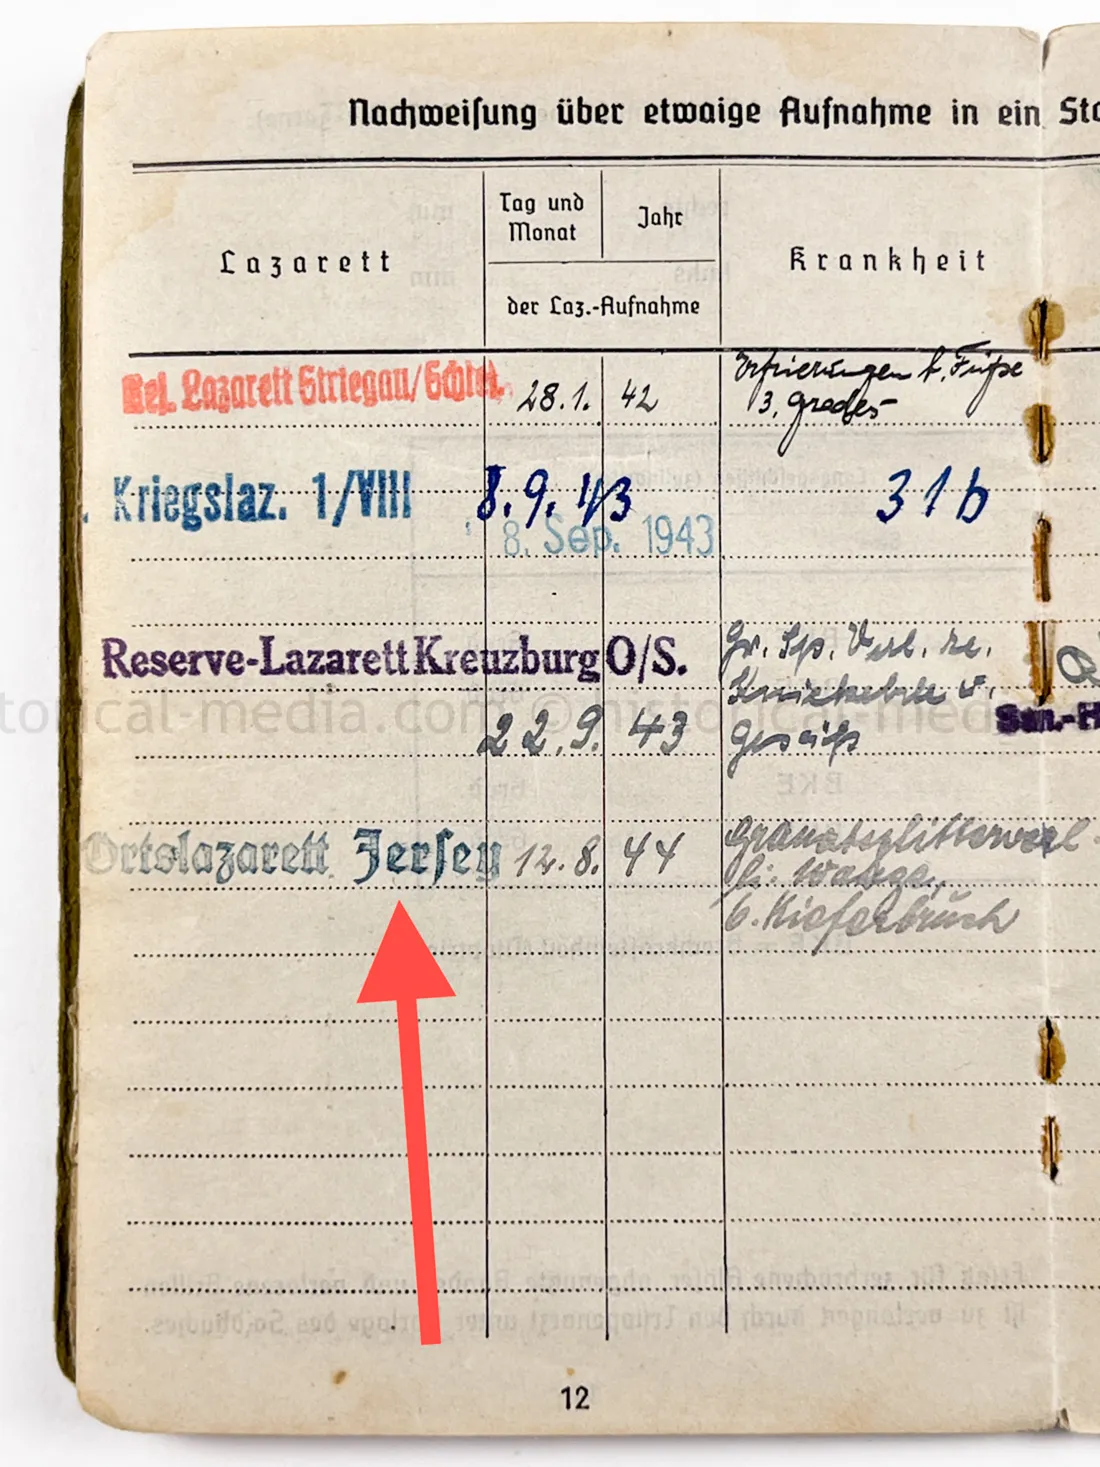 Nachweisung über etwaige Aufnahme in ein Sta
Lazarett
Tag und
Monat
Jahr
der Laz.-Aufnahme
Krankheit
Res. Lazarett Striegau/Schles.
28.1. 42
Erfrierungen b. Füße
3. Grades
Kriegslaz. 1/VIII
8.9.43
31b
8. Sep. 1943
Reserve-Lazarett Kreuzburg O/S.
Gr. Spl. Verl. re.
Kniekehle u.
22.9. 43
Gesäß
San.-H
torical-media com © historical-med
Ortslazarett Jersey
12.8. 44
Granatsplitterverl.
li. Wange,
6. Kieferbruch
12